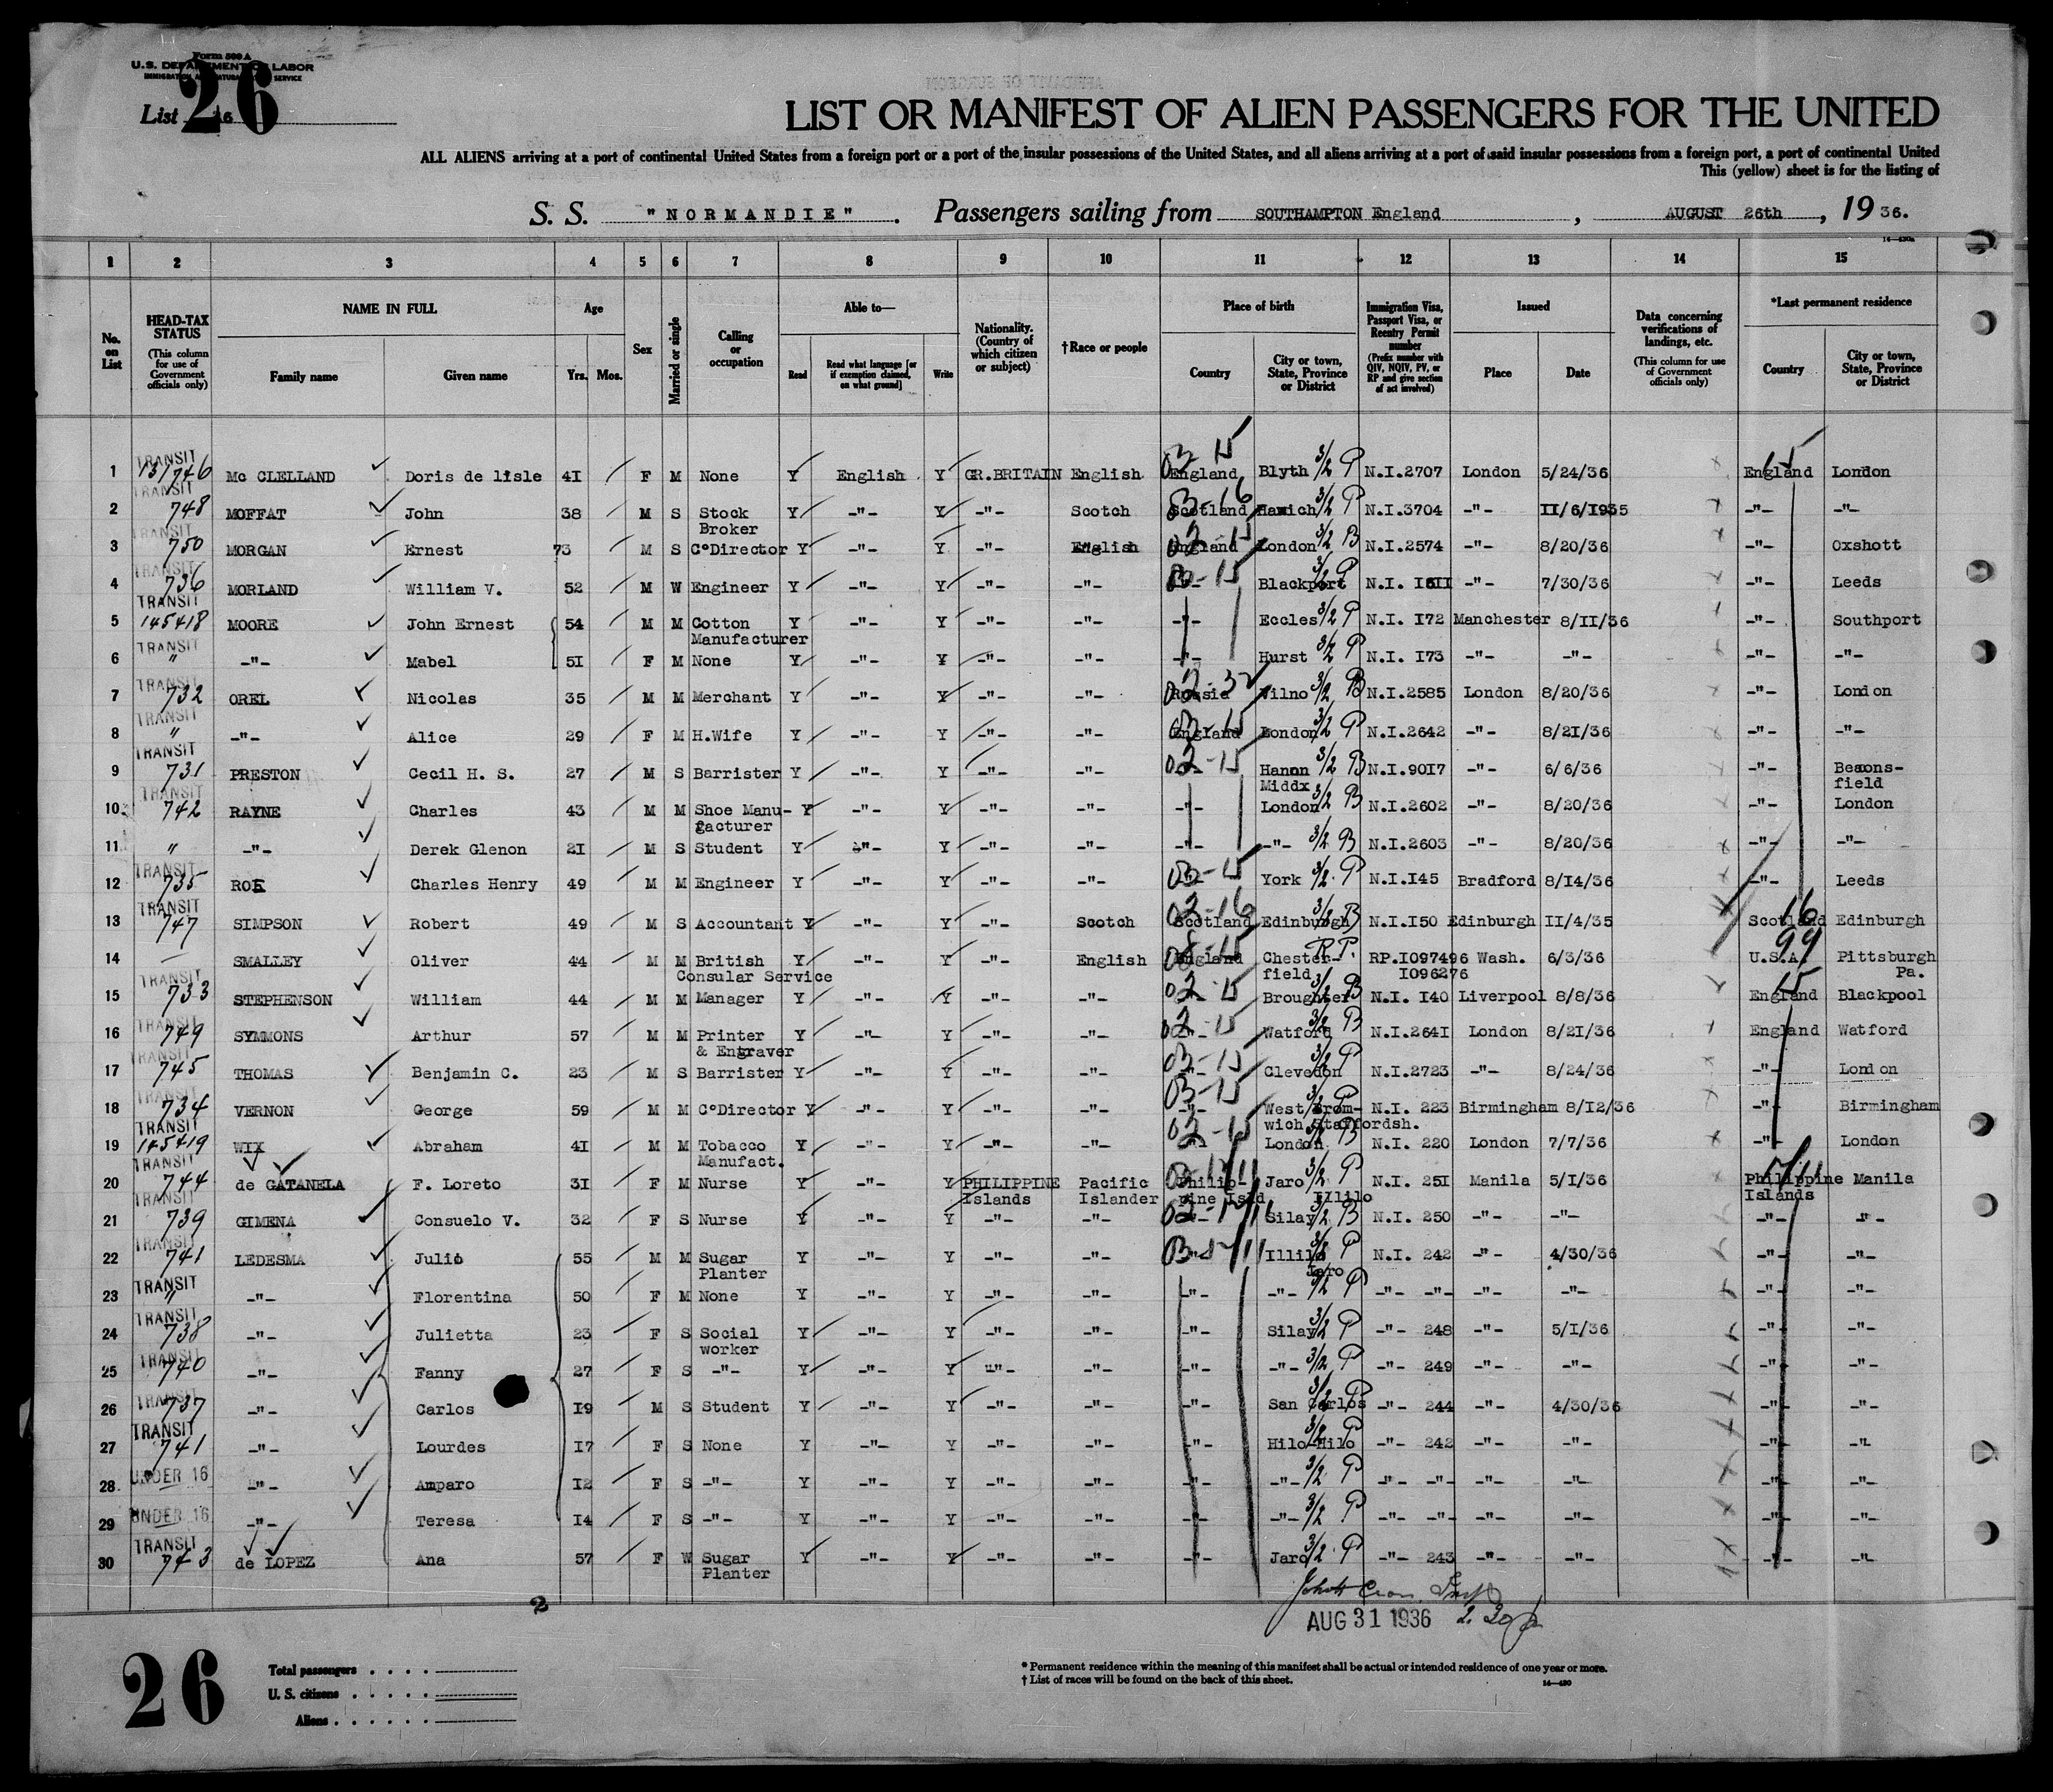 Form 500 A
U.S. DEPARTMENT OF LABOR
IMMIGRATION AND NATURALIZATION SERVICE
List 26
26
LIST OR MANIFEST OF ALIEN PASSENGERS FOR THE UNITED
ALL ALIENS arriving at a port of continental United States from a foreign port or a port of the insular possessions of the United States, and all aliens arriving at a port of said insular possessions from a foreign port, a port of continental United
This (yellow) sheet is for the listing of
S. S. "NORMANDIE". Passengers sailing from SOUTHAMPTON England, AUGUST 26th, 1936.
1 2 3 4 5 6 7 8 9 10 11 12 13 14 15
No. on List
HEAD-TAX STATUS (This column for use of Government officials only)
NAME IN FULL Family name Given name
Age Yrs. Mos.
Sex
Married or single
Calling or occupation
Able to— Read Read what language [or if exemption claimed, on what ground] Write
Nationality. (Country of which citizen or subject)
†Race or people
Place of birth Country City or town, State, Province or District
Immigration Visa, Passport Visa, or Reentry Permit number (Prefix number with QIV, NQIV, PV, or RP and give section of act involved)
Issued Place Date
Data concerning verifications of landings, etc. (This column for use of Government officials only)
*Last permanent residence Country City or town, State, Province or District
1 TRANSIT 131746 Mc CLELLAND Doris de lisle 41 F M None Y English Y GR.BRITAIN English England Blyth 3/2 P N.I.2707 London 5/24/36 England London
2 TRANSIT 748 MOFFAT John 38 M S Stock Broker Y -"- Y -"- Scotch Scotland 3/2 P N.I.3704 -"- II/6/1935 -"- -"-
3 TRANSIT 750 MORGAN Ernest 73 M S C°Director Y -"- Y -"- English England London 3/2 B N.I.2574 -"- 8/20/36 -"- Oxshott
4 TRANSIT 736 MORLAND William V. 52 M W Engineer Y -"- Y -"- -"- -"- Blackport 3/2 P N.I. I6II -"- 7/30/36 -"- Leeds
5 TRANSIT 145418 MOORE John Ernest 54 M M Cotton Manufacturer Y -"- Y -"- -"- -"- Eccles 3/2 P N.I. I72 Manchester 8/II/36 -"- Southport
6 TRANSIT " -"- Mabel 5I F M None Y -"- Y -"- -"- -"- Hurst 3/2 P N.I. I73 -"- -"- -"- -"-
7 TRANSIT 732 OREL Nicolas 35 M M Merchant Y -"- Y -"- -"- Russia Vilno 3/2 B N.I.2585 London 8/20/36 -"- London
8 TRANSIT " -"- Alice 29 F M H.Wife Y -"- Y -"- -"- England London 3/2 P N.I.2642 -"- 8/2I/36 -"- -"-
9 TRANSIT 731 PRESTON Cecil H. S. 27 M S Barrister Y -"- Y -"- -"- -"- Hanon Middx 3/2 B N.I.90I7 -"- 6/6/36 -"- Beaconsfield
10 TRANSIT 742 RAYNE Charles 43 M M Shoe Manu-facturer Y -"- Y -"- -"- -"- London 3/2 B N.I.2602 -"- 8/20/36 -"- London
11 " -"- Derek Glenon 2I M S Student Y -"- Y -"- -"- -"- -"- 3/2 B N.I.2603 -"- 8/20/36 -"- -"-
12 TRANSIT 735 ROE Charles Henry 49 M M Engineer Y -"- Y -"- -"- -"- York 3/2 P N.I.I45 Bradford 8/14/36 -"- Leeds
13 TRANSIT 747 SIMPSON Robert 49 M S Accountant Y -"- Y -"- Scotch Scotland Edinburgh 3/2 B N.I.I50 Edinburgh II/4/35 Scotland Edinburgh
14 — SMALLEY Oliver 44 M M British Consular Service Y -"- Y -"- English England Chester-field R.P. RP.I097496 I096276 Wash. 6/3/36 U.S.A. Pittsburgh Pa.
15 TRANSIT 733 STEPHENSON William 44 M M Manager Y -"- Y -"- -"- Broughter 3/2 B N.I. I40 Liverpool 8/8/36 England Blackpool
16 TRANSIT 749 SYMMONS Arthur 57 M M Printer & Engraver Y -"- Y -"- -"- -"- Watford 3/2 B N.I.264I London 8/2I/36 England Watford
17 TRANSIT 745 THOMAS Benjamin C. 23 M S Barrister Y -"- Y -"- -"- -"- Clevedon 3/2 P N.I.2723 -"- 8/24/36 -"- London
18 TRANSIT 734 VERNON George 59 M M C°Director Y -"- Y -"- -"- -"- West Brom-wich Staffordsh. 3/2 P N.I. 223 Birmingham 8/I2/36 -"- Birmingham
19 TRANSIT 145419 WIX Abraham 4I M M Tobacco Manufact. Y -"- Y -"- -"- -"- London 3/2 B N.I. 220 London 7/7/36 -"- London
20 TRANSIT 744 de GATANELA F. Loreto 3I F M Nurse Y -"- Y PHILIPPINE Islands Pacific Islander Philip-pine Isld. Jaro Illilo 3/2 P N.I. 25I Manila 5/I/36 Philippine Islands Manila
21 TRANSIT 739 GIMENA Consuelo V. 32 F S Nurse Y -"- Y -"- -"- -"- Silay 3/2 B N.I. 250 -"- -"- -"- -"-
22 TRANSIT 741 LEDESMA Julio 55 M M Sugar Planter Y -"- Y -"- -"- -"- Illilo Jaro 3/2 P N.I. 242 -"- 4/30/36 -"- -"-
23 TRANSIT " -"- Florentina 50 F M None Y -"- Y -"- -"- -"- -"- 3/2 P -"- -"- -"- -"- -"- -"-
24 TRANSIT 738 -"- Julietta 23 F S Social worker Y -"- Y -"- -"- -"- Silay 3/2 P -"- 248 -"- 5/I/36 -"- -"-
25 TRANSIT 740 -"- Fanny 27 F S -"- Y -"- Y -"- -"- -"- -"- 3/2 P -"- 249 -"- -"- -"- -"-
26 TRANSIT 737 -"- Carlos I9 M S Student Y -"- Y -"- -"- -"- San Carlos 3/2 P -"- 244 -"- 4/30/36 -"- -"-
27 TRANSIT 741 -"- Lourdes I7 F S None Y -"- Y -"- -"- -"- Hilo-Hilo 3/2 P -"- 242 -"- -"- -"- -"-
28 UNDER 16 -"- Amparo I2 F S -"- Y -"- Y -"- -"- -"- -"- 3/2 P -"- -"- -"- -"- -"- -"-
29 UNDER 16 -"- Teresa I4 F S -"- Y -"- Y -"- -"- -"- -"- 3/2 P -"- -"- -"- -"- -"- -"-
30 TRANSIT 743 de LOPEZ Ana 57 F W Sugar Planter Y -"- Y -"- -"- -"- Jaro 3/2 P -"- 243 -"- -"- -"- -"-
2
AUG 31 1936
26
Total passengers . . . .
U. S. citizens . . . . .
Aliens . . . . . .
* Permanent residence within the meaning of this manifest shall be actual or intended residence of one year or more.
† List of races will be found on the back of this sheet.
14—430